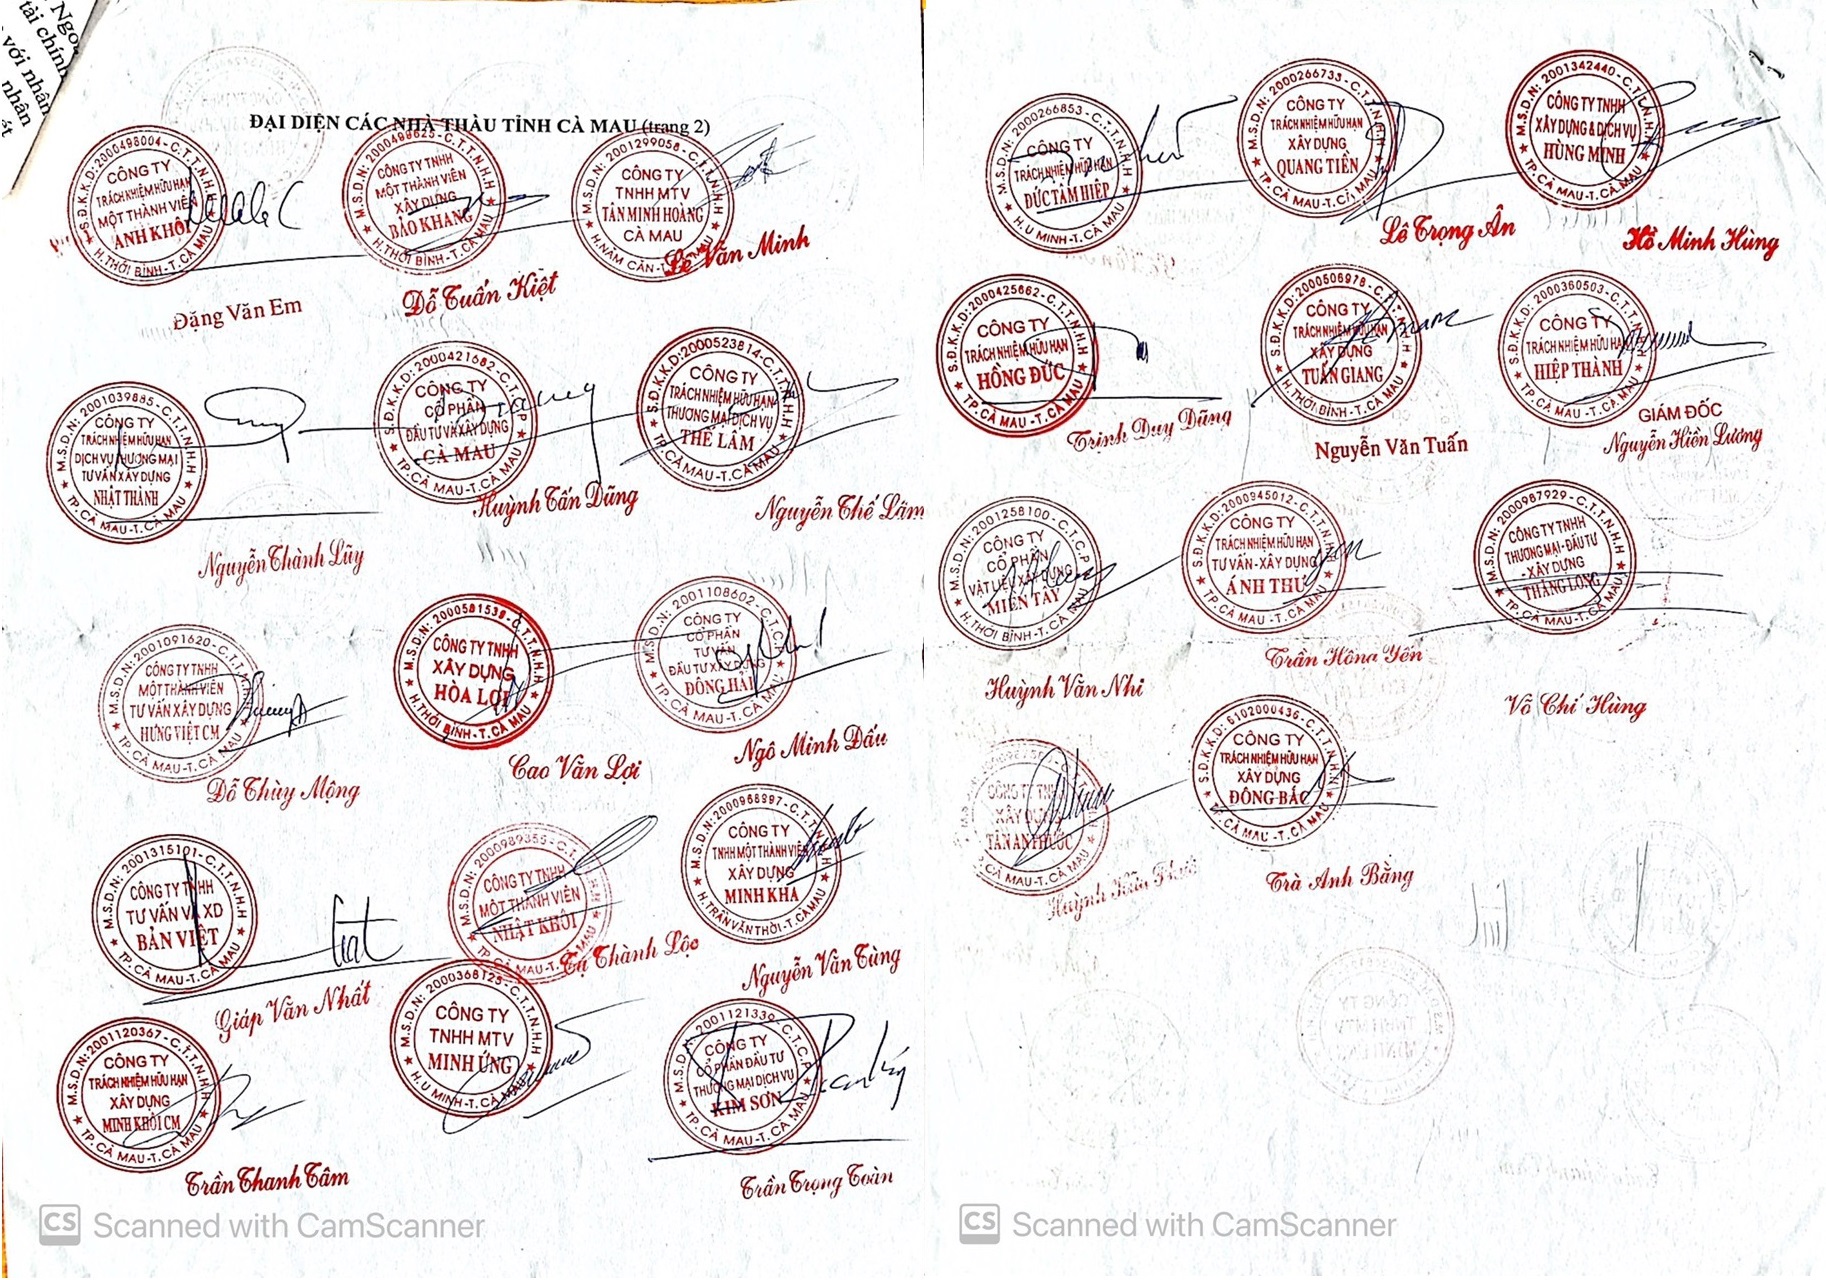 Ngo
tài chính
với nhân
nhân
ĐẠI DIỆN CÁC NHÀ THẦU TỈNH CÀ MAU (trang 2)
S.Đ.K.K.D:2000498004-C.T.T.N.H.H
CÔNG TY
TRÁCH NHIỆM HỮU HẠN
MỘT THÀNH VIÊN
ANH KHÔI
H.THỚI BÌNH-T.CÀ MAU
Đặng Văn Em
M.S.D.N:2000499625-C.T.T.N.H.H
CÔNG TY TNHH
MỘT THÀNH VIÊN
XÂY DỰNG
BẢO KHANG
H.THỚI BÌNH-T.CÀ MAU
Đỗ Tuấn Kiệt
M.S.D.N:2001299058-C.T.T.N.H.H
CÔNG TY
TNHH MTV
TÂN MINH HOÀNG
CÀ MAU
H.NĂM CĂN-T.CÀ MAU
Lê Văn Minh
M.S.D.N:2001039885-C.T.T.N.H.H
CÔNG TY
TRÁCH NHIỆM HỮU HẠN
DỊCH VỤ THƯƠNG MẠI
TƯ VẤN XÂY DỰNG
NHẬT THÀNH
TP.CÀ MAU-T.CÀ MAU
Nguyễn Thành Lũy
S.Đ.K.K.D:2000421682-C.T.C.P
CÔNG TY
CỔ PHẦN
ĐẦU TƯ VÀ XÂY DỰNG
CÀ MAU
TP.CÀ MAU-T.CÀ MAU
Huỳnh Tấn Dũng
S.Đ.K.K.D:2000523814-C.T.T.N.H.H
CÔNG TY
TRÁCH NHIỆM HỮU HẠN
THƯƠNG MẠI DỊCH VỤ
THẾ LÂM
TP.CÀ MAU-T.CÀ MAU
Nguyễn Thế Lâm
M.S.D.N:2001091620-C.T.T.N.H.H
CÔNG TY TNHH
MỘT THÀNH VIÊN
TƯ VẤN XÂY DỰNG
HƯNG VIỆT CM
TP.CÀ MAU-T.CÀ MAU
Đỗ Thùy Mộng
M.S.D.N:2000581539-C.T.T.N.H.H
CÔNG TY TNHH
XÂY DỰNG
HÒA LỢI
H.THỚI BÌNH-T.CÀ MAU
Cao Văn Lợi
M.S.D.N:2001108602-C.T.C.P
CÔNG TY
CỔ PHẦN
TƯ VẤN
ĐẦU TƯ XÂY DỰNG
ĐÔNG HẢI
TP.CÀ MAU-T.CÀ MAU
Ngô Minh Đấu
M.S.D.N:2001315101-C.T.T.N.H.H
CÔNG TY TNHH
TƯ VẤN VÀ XD
BẢN VIỆT
TP.CÀ MAU-T.CÀ MAU
Giáp Văn Nhất
M.S.D.N:2000989355-C.T.T.N.H.H
CÔNG TY TNHH
MỘT THÀNH VIÊN
NHẬT KHÔI
TP.CÀ MAU-T.CÀ MAU
Tạ Thành Lộc
M.S.D.N:2000968997-C.T.T.N.H.H
CÔNG TY
TNHH MỘT THÀNH VIÊN
XÂY DỰNG
MINH KHA
H.TRẦN VĂN THỜI-T.CÀ MAU
Nguyễn Văn Tùng
M.S.D.N:2001120367-C.T.T.N.H.H
CÔNG TY
TRÁCH NHIỆM HỮU HẠN
XÂY DỰNG
MINH KHÔI CM
TP.CÀ MAU-T.CÀ MAU
Trần Thanh Tâm
M.S.D.N:2000368125-C.T.T.N.H.H
CÔNG TY
TNHH MTV
MINH ỨNG
H.U MINH-T.CÀ MAU
M.S.D.N:2001121339-C.T.C.P
CÔNG TY
CỔ PHẦN ĐẦU TƯ
THƯƠNG MẠI DỊCH VỤ
KIM SƠN
TP.CÀ MAU-T.CÀ MAU
Trần Trọng Toàn
CS Scanned with CamScanner
M.S.D.N:2000266853-C.T.T.N.H.H
CÔNG TY
TRÁCH NHIỆM HỮU HẠN
ĐỨC TÂM HIỆP
H.U MINH-T.CÀ MAU
M.S.D.N:2000266733-C.T.T.N.H.H
CÔNG TY
TRÁCH NHIỆM HỮU HẠN
XÂY DỰNG
QUANG TIẾN
TP.CÀ MAU-T.CÀ MAU
Lê Trọng Ân
M.S.D.N:2001342440-C.T.T.N.H.H
CÔNG TY TNHH
XÂY DỰNG & DỊCH VỤ
HÙNG MINH
TP.CÀ MAU-T.CÀ MAU
Hồ Minh Hùng
S.Đ.K.K.D:2000425662-C.T.T.N.H.H
CÔNG TY
TRÁCH NHIỆM HỮU HẠN
HỒNG ĐỨC
TP.CÀ MAU-T.CÀ MAU
Trịnh Duy Dũng
S.Đ.K.K.D:2000506976-C.T.T.N.H.H
CÔNG TY
TRÁCH NHIỆM HỮU HẠN
XÂY DỰNG
TUẤN GIANG
H.THỚI BÌNH-T.CÀ MAU
Nguyễn Văn Tuấn
S.Đ.K.K.D:2000360503-C.T.T.N.H.H
CÔNG TY
TRÁCH NHIỆM HỮU HẠN
HIỆP THÀNH
TP.CÀ MAU-T.CÀ MAU
GIÁM ĐỐC
Nguyễn Hiền Lương
M.S.D.N:2001258100-C.T.C.P
CÔNG TY
CỔ PHẦN
VẬT LIỆU XÂY DỰNG
MIỀN TÂY
H.THỚI BÌNH-T.CÀ MAU
Huỳnh Văn Nhi
S.Đ.K.K.D:2000945012-C.T.T.N.H.H
CÔNG TY
TRÁCH NHIỆM HỮU HẠN
TƯ VẤN-XÂY DỰNG
ÁNH THƯ
TP.CÀ MAU-T.CÀ MAU
Trần Hồng Yến
M.S.D.N:2000987929-C.T.T.N.H.H
CÔNG TY TNHH
THƯƠNG MẠI-ĐẦU TƯ
-XÂY DỰNG
THĂNG LONG
TP.CÀ MAU-T.CÀ MAU
Võ Chí Hùng
CÔNG TY TNHH
XÂY DỰNG
TÂN AN THUỘC
CÀ MAU-T.CÀ MAU
Huỳnh
S.Đ.K.K.D:6102000436-C.T.T.N.H.H
CÔNG TY
TRÁCH NHIỆM HỮU HẠN
XÂY DỰNG
ĐÔNG BẮC
TP.CÀ MAU-T.CÀ MAU
Trà Anh Bằng
CS Scanned with CamScanner